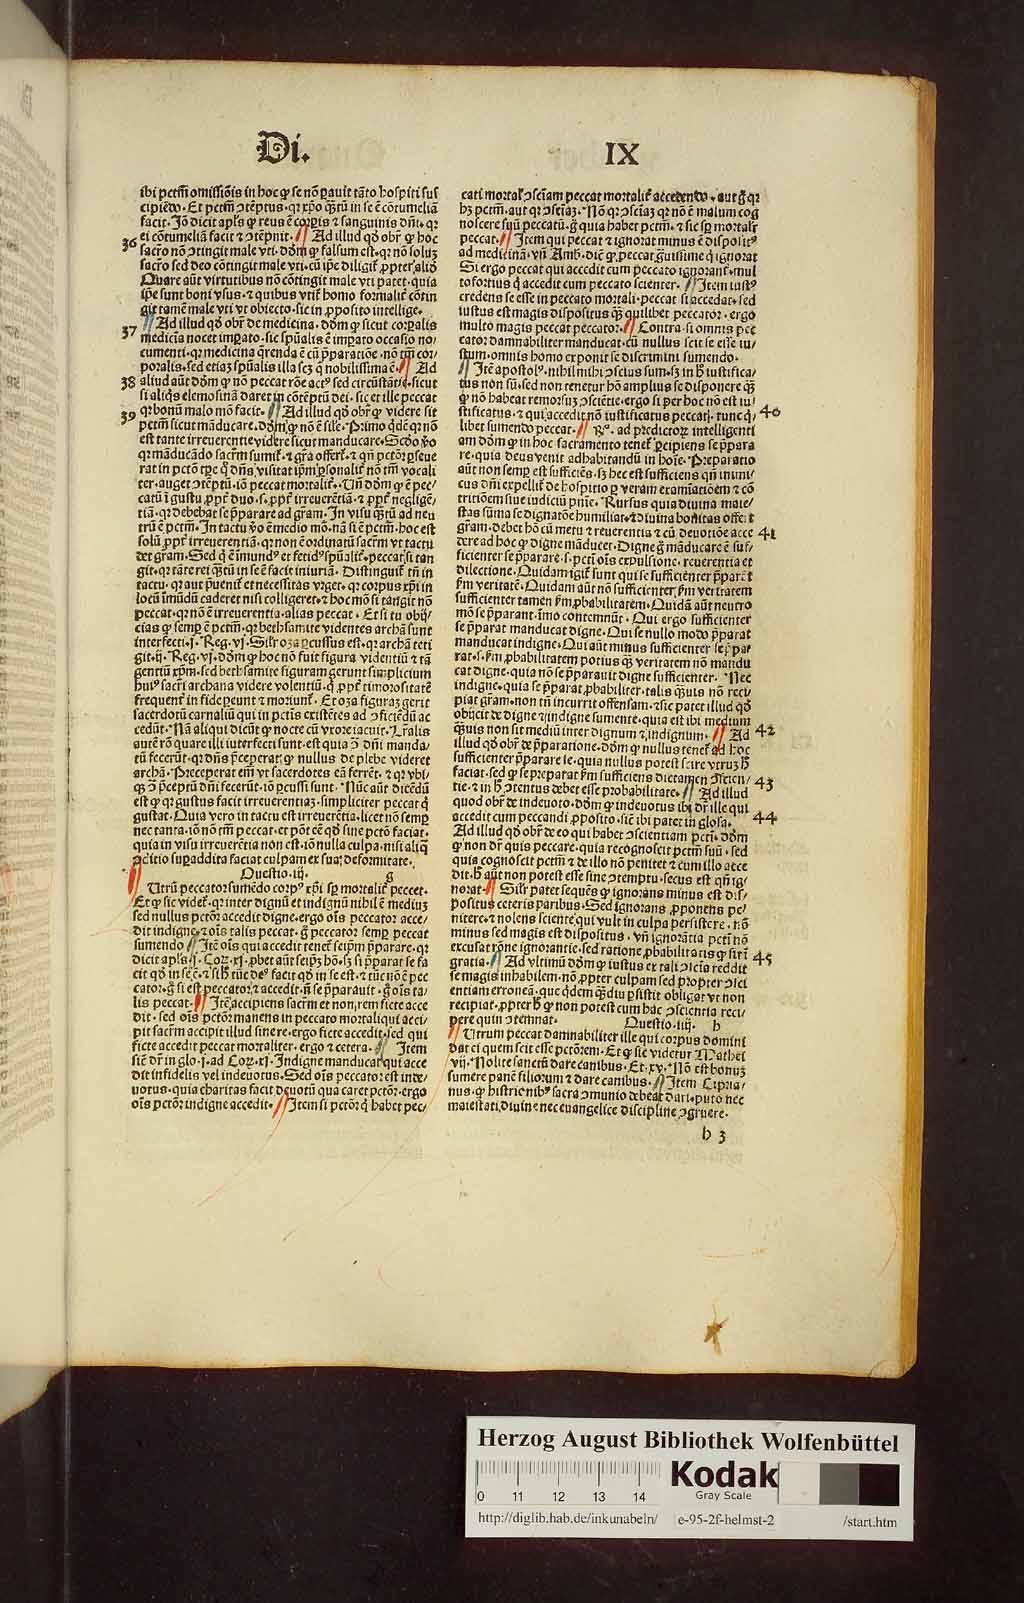 Di.
IX
ibi pctm̄ omissiōis in hoc ꝙ se nō ꝑauit tāto hospiti sus
cipiēdo. Et pctm̄ ↄtēptus. qꝛ xp̄o qꝫtū in se ē cōtumeliā
facit. Jō dicit apl̓s ꝙ reus ē corꝑis ⁊ sanguinis dn̄i. qꝛ
ei cōtumeliā facit ⁊ ↄtēpnit. Ad illud qḋ obr̄ ꝙ hoc
36
sacro nō ↄtingit male vti. dōm ꝙ falsum est. qꝛ nō soluꝫ
sacro sed deo cōtingit male vti. cū ip̄e diligit̄ ꝓpter aliḋ
Quare aūt virtutibus nō cōtingit male vti patet. quia
ip̄e sunt boni vsus. ⁊ quibus vtit̄ homo formalit̄ cōtin
git tamē male vti vt obiecto. sic in ꝓposito intellige.
Ad illud qḋ obr̄ de medicina. dōm ꝙ sicut corꝑalis
37
medicīa nocet imꝑato. sic spūalis ē imꝑato occasio no/
cumenti. qꝛ medicina q̄renda ē cū p̄paratiōe. nō tm̄ cor/
poralis. sed etiaꝫ spūalis illa scꝫ q̄ nobilissima ē. Ad
38
aliud aūt dōm ꝙ nō peccat rōe actꝰ sed circūstātie. sicut
si aliq̄s elemosinā daret in cōtēptū dei. sic et ille peccat
39
qꝛ bonū malo mō facit. Ad illud qḋ obr̄ ꝙ videre sit
pctm̄ sicut māducare. dōm ꝙ nō ē sil̓e. Primo q̇dē qꝛ nō
est tante irreuerentie videre sicut manducare. Scḋo ꝟo
qꝛ māducādo sacrm̄ sumit̄. ⁊ gr̄a offert̄. ⁊ qn̄ pctōr ꝑseue
rat in pctō tꝑe q̇ dn̄s visitat ip̄m ꝑsonalit̄ nō tm̄ vocali
ter. auget ↄtēptū. iō peccat mortalit̄. Un̄ dōm ꝙ ē pec/
catū ī gustu ꝓpt̄ duo. s. ꝓpt̄ irreuerētiā. ⁊ ꝓpt̄ negligē/
tiā. qꝛ debebat se p̄parare ad gr̄am. In visu qꝫtū ad neu
trū ē pctm̄. In tactu ꝟo ē medio mō. nā si ē pctm̄. hoc est
solū ꝓpt̄ irreuerētiā. qꝛ non ē ordinatū sacrm̄ vt tactu
det gram. Sed q̇ ē imundꝰ et fetidꝰ spūalit̄. peccat si tan
git. qꝛ tāte rei qꝫtū in se ē facit iniuriā. Distinguit̄ tn̄ in
tactu. qꝛ aut ꝑuenit̄ et necessitas vrget. qꝛ corpus xp̄i in
locū īmūdū caderet nisi colligeret. ⁊ hoc mō si tangit nō
peccat. qꝛ nō ē irreuerentia. alias peccat. Et si tu obij/
cias ꝙ semꝑ ē pctm̄. qꝛ bethsamite videntes archā sunt
interfecti. j. Reg. vj. Sil̓r oza ꝑcussus est. qꝛ archā teti
git. ij. Reg. vj. dōm ꝙ hoc nō fuit figura videntiū ⁊ tā
gentiū xp̄m. sed bethsamite figuram gerunt simplicium
huiꝰ sacr̄i archana videre volentiū. q̇ ꝓpt̄ timorositatē
frequent̄ in fide ꝑeunt ⁊ moriunt̄. Et oza figuraꝫ gerit
sacerdotū carnaliū qui in pctīs existētes ad ↄficiēdū ac
cedūt. Nā aliqui dicūt ꝙ nocte cū vxore iacuit. Lr̄alis
autē rō quare illi interfecti sunt. est quia ↄ̄ dn̄i manda/
tū fecerūt. qꝛ dn̄s p̄ceperat. ꝙ nullus de plebe videret
archā. Preceperat em̄ vt sacerdotes eā ferrēt. ⁊ qꝛ vbi/
qꝫ ↄ̄ p̄ceptū dn̄i fecerūt. iō ꝑcussi sunt. Nūc aūt dicēdū
est ꝙ qꝛ gustus facit irreuerentiaꝫ. simpliciter peccat q̇
gustat. Quia vero in tactu est irreuerētia. licet nō semꝑ
nec tanta. iō nō tm̄ peccat. et pōt eē qḋ sine pctō faciat.
quia in visu irreuerētia non est. iō nulla culpa. nisi aliq̄
ↄditio suꝑaddita faciat culpam ex suaꝫ deformitate.
Questio. iij. g
Utrū peccator sumēdo corpꝰ xp̄i sꝑ mortalit̄ peccet.
Et ꝙ sic videt̄. qꝛ inter dignū et indignū nihil ē mediuꝫ
sed nullus pctōr accedit digne. ergo oīs peccator acce/
dit indigne. ⁊ oīs talis peccat. g̊ peccator semꝑ peccat
sumendo. Itē oīs qui accedit tenet̄ seip̄m p̄parare. qꝛ
dicit apl̓s. j. Cor. xj. ꝓbet aūt seip̄ꝫ hō. sꝫ si p̄parat se fa
cit qḋ in se ē. ⁊ sibi tūc deꝰ facit qḋ in se est. ⁊ tūc nō ē pec
cator. g̊ si est peccator ⁊ accedit. n̄ se p̄parauit. g̊ oīs ta/
lis peccat. Itē accipiens sacrm̄ et non rem ficte acce
dit. sed oīs pctōr manens in peccato mortali qui acci/
pit sacrm̄ accipit illud sine re. ergo ficte accedit. sed qui
ficte accedit peccat mortaliter. ergo ⁊ cetera. Item
sic̄ dr̄ in glo. j. ad Cor. xj. Indigne manducat qui acce
dit infidelis vel indeuotus. Sed oīs peccator est inde/
uotus. quia charitas facit deuotū qua caret pctōr. ergo
oīs pctōr indigne accedit. Item si pctōr q̇ habet pec/
cati mortal̓ ↄsciam peccat mortalit̄ accedendo. aut g̊ qꝛ
hꝫ pctm̄. aut qꝛ ↄsciaꝫ. Nō qꝛ ↄsciaꝫ qꝛ nō ē malum cog
noscere suū peccatū. g̊ quia habet pctm̄. ⁊ sic sꝑ mortalr̄
peccat. Item qui peccat ⁊ ignorat minus ē dispositꝰ
ad medicinā. vn̄ Amb. dic̄ ꝙ peccat g̈uissime q̇ ignorat
Si ergo peccat qui accedit cum peccato ignorant̄. mul
tofortius q̇ accedit cum peccato scienter. Item iustꝰ
credens se esse in peccato mortali. peccat si accedat. sed
iustus est magis dispositus qꝫ quilibet peccator. ergo
multo magis peccat peccator. Contra si omnis pec
cator damnabiliter manducat. cū nullus scit se esse iu/
stum. omnis homo exponit se discrimini sumendo.
Itē apostolꝰ. nihil mihi ↄscius sum. sꝫ in h̊ iustifica/
tus non sū. sed non tenetur hō amplius se disponere qꝫ
ꝙ nō habeat remorsuꝫ ↄscīetie. ergo si per hoc nō est iu/
40
stificatus. ⁊ qui accedit nō iustificatus peccat. tunc q̇/
libet sumendo peccat. Rꝰ. ad p̄dictorꝫ intelligenti
am dōm ꝙ in hoc sacramento tenet̄ ꝑcipiens se p̄para
re. quia deus venit ad habitandū in hoīe. Preparatio
aūt non semꝑ est sufficiēs. sꝫ hec est sufficiens qn̄ inimi/
cus dn̄i expellit̄ de hospitio ꝑ veram examīatiōem ⁊ cō
tritiōem siue iudiciū pnīe. Rursus quia diuina maie/
stas sūma se dignatōe humiliat. ⁊ diuina bonitas offert
gr̄am. debet hō cū metu ⁊ reuerentia ⁊ cū deuotiōe acce
41
dere ad hoc ꝙ digne māducet. Digne g̊ māducare ē suf/
ficienter se p̄parare. s. pcti oīs expulsione. reuerentia et
dilectione. Quidam igit̄ sunt qui se sufficienter p̄parēt
ẜm veritatē. Quidam aūt nō sufficienter ẜm veritatem
sufficienter tamen ẜm ꝓbabilitatem. Quidā aūt neutro
mō se p̄parant. imo contemnūt. Qui ergo sufficienter
se p̄parat manducat digne. Qui se nullo modo p̄parat
manducat indigne. Qui aūt minus sufficienter se p̄pa/
rat. s. ẜm ꝓbabilitatem potius qꝫ veritatem nō mandu
cat digne. quia nō se p̄parauit digne sufficienter. Nec
indigne. quia se p̄parat ꝓbabiliter. talis qꝫuis nō reci/
piat gram. non tn̄ incurrit offensam. ⁊ sic patet illud qḋ
obijcit̄ de digne ⁊ indigne sumente. quia est ibi medium
qꝫuis non sit mediū inter dignum ⁊ indignum. Ad
42
illud qḋ obr̄ de p̄paratione. dōm ꝙ nullus tenet̄ ad hoc
sufficienter p̄parare se. quia nullus potest scire vtruꝫ h̊
faciat. sed ꝙ se preparat ẜm sufficiens dictamen ↄscien/
43
tie. ⁊ in h̊ ↄtentus debet esse probabilitate. Ad illud
quod obr̄ de indeuoto. dōm ꝙ indeuotus ibi dr̄ ille qui
accedit cum peccandi ꝓposito. sic̄ ibi patet in glosa.
44
Ad illud qḋ obr̄ de eo qui habet ↄscientiam pcti. dōm
ꝙ non dr̄ quis peccare. quia recognoscit pctm̄ suū. sed
quia cognoscit pctm̄ ⁊ de illo nō penitet ⁊ cum illo acce
dit. h̊ aūt non potest esse sine ↄtemptu. secus est qn̄ ig/
norat. Sil̓r patet sequēs ꝙ ignorans minus est dis/
positus ceteris paribus. Sed ignorans. ꝓponens pe/
nitere. ⁊ nolens sciente qui vult in culpa persistere. nō
minus sed magis est dispositus. vn̄ ignorātia pctm̄ nō
excusat rōne ignorantie. sed ratione ꝓbabilitatis ꝙ sit ī
45
gratia. Ad vltimū dōm ꝙ iustus ex tali ↄscīa reddit
se magis inhabilem. nō ꝓpter culpam sed propter ↄsci
entiam erroneā. que q̇dem qꝫdiu ꝑsistit obligat vt non
recipiat. ꝓpter h̊ ꝙ non potest cum hac ↄscientia reci/
pere quin ↄtemnat. Questio. iiij. h
Utrum peccat damnabiliter ille qui corpus domini
dat ei quem scit esse pctōrem. Et ꝙ sic videtur Mathei
vij. Nolite sanctū dare canibus. Et. xv. Nō est bonuꝫ
sumere panē filiorum ⁊ dare canibus. Item Cipria/
nus. ꝙ histrioni bꝰ sacra ↄmunio debeat dari. puto nec
maiestati diuine nec euangelice discipline ↄgruere.
h 3
Herzog August Bibliothek Wolfenbüttel
0 11 12 13 14
Kodak
Gray Scale
http://diglib.hab.de/inkunabeln/ e-95-2f-helmst-2 /start.htm